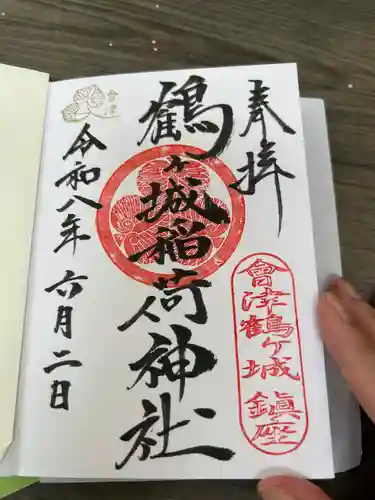 奉拝
會津鶴ヶ城鎮座
鶴ヶ城稲荷神社
令和八年六月二日